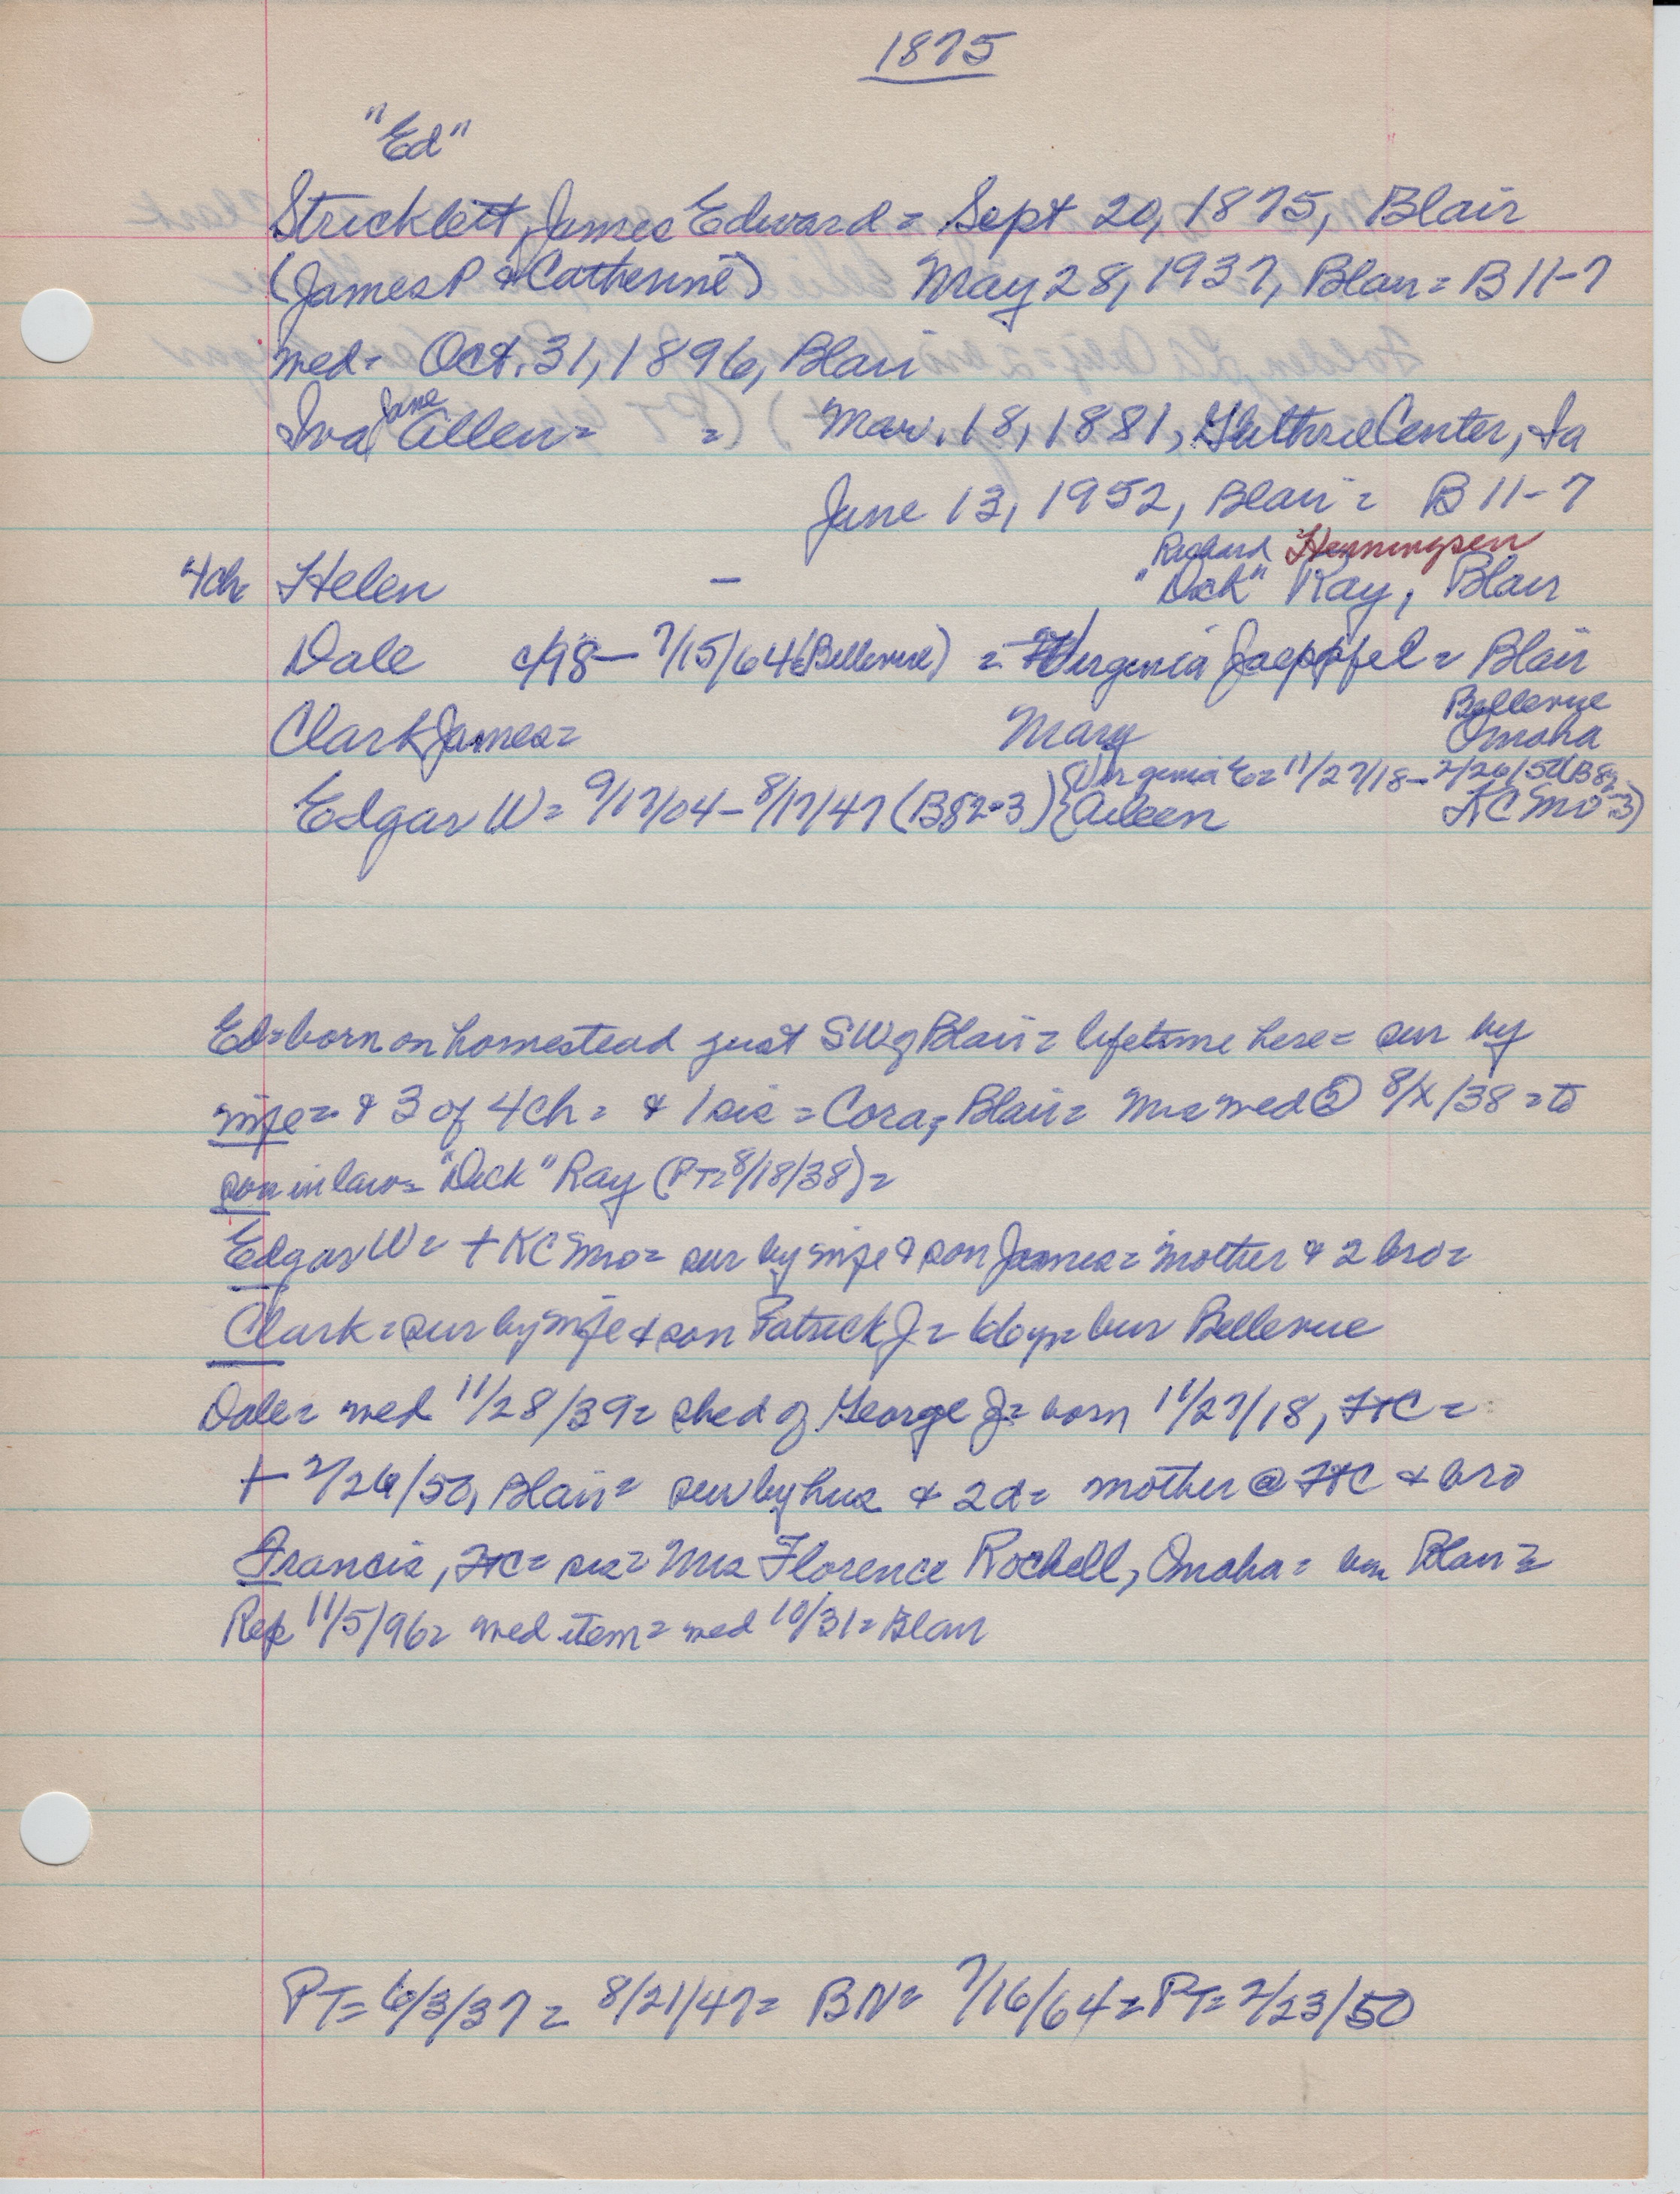 1875
"Ed"
Stricklett, James Edward = Sept 20, 1875, Blair
(James P & Catherine) May 28, 1937, Blair = B 11-7
wed = Oct. 31, 1896, Blair
Iva Jane Allen = = Mar. 18, 1881, Guthrie Center, Ia
June 13, 1952, Blair = B 11-7
Richard Henningsen
4ch Helen - "Dick" Ray, Blair
Dale c/98 - 7/15/64 (Bellevue) = Virginia = Blair
Bellevue
Clark James = Mary Omaha
Virginia E = 11/27/18 - 2/26/50 (B 82-3)
Edgar W = 9/17/04 - 8/17/47 (B82-3) { Aileen KC Mo
Ed = born on homestead just SW of Blair = lifetime here = sur by
wife = & 3 of 4 ch = & 1 sis = Cora, Blair = Mrs wed ② 8/x/38 = to
son in law = "Dick" Ray (PT = 8/18/38) =
Edgar W = + KC Mo = sur by wife & son James = mother & 2 bro =
Clark = sur by wife & son Patrick J = 66 yr = bur Bellevue
Dale = wed 11/28/39 = she d of George J = born 11/27/18, FtC =
+ 2/26/50, Blair = sur by hus & 2d = mother @ FtC & bro
Francis, FtC = sis = Mrs Florence Rochell, Omaha = bur Blair =
Rep 11/5/96 = wed item = wed 10/31 = Blair
PT = 6/3/37 = 8/21/47 = BN = 7/16/64 = PT = 2/23/50